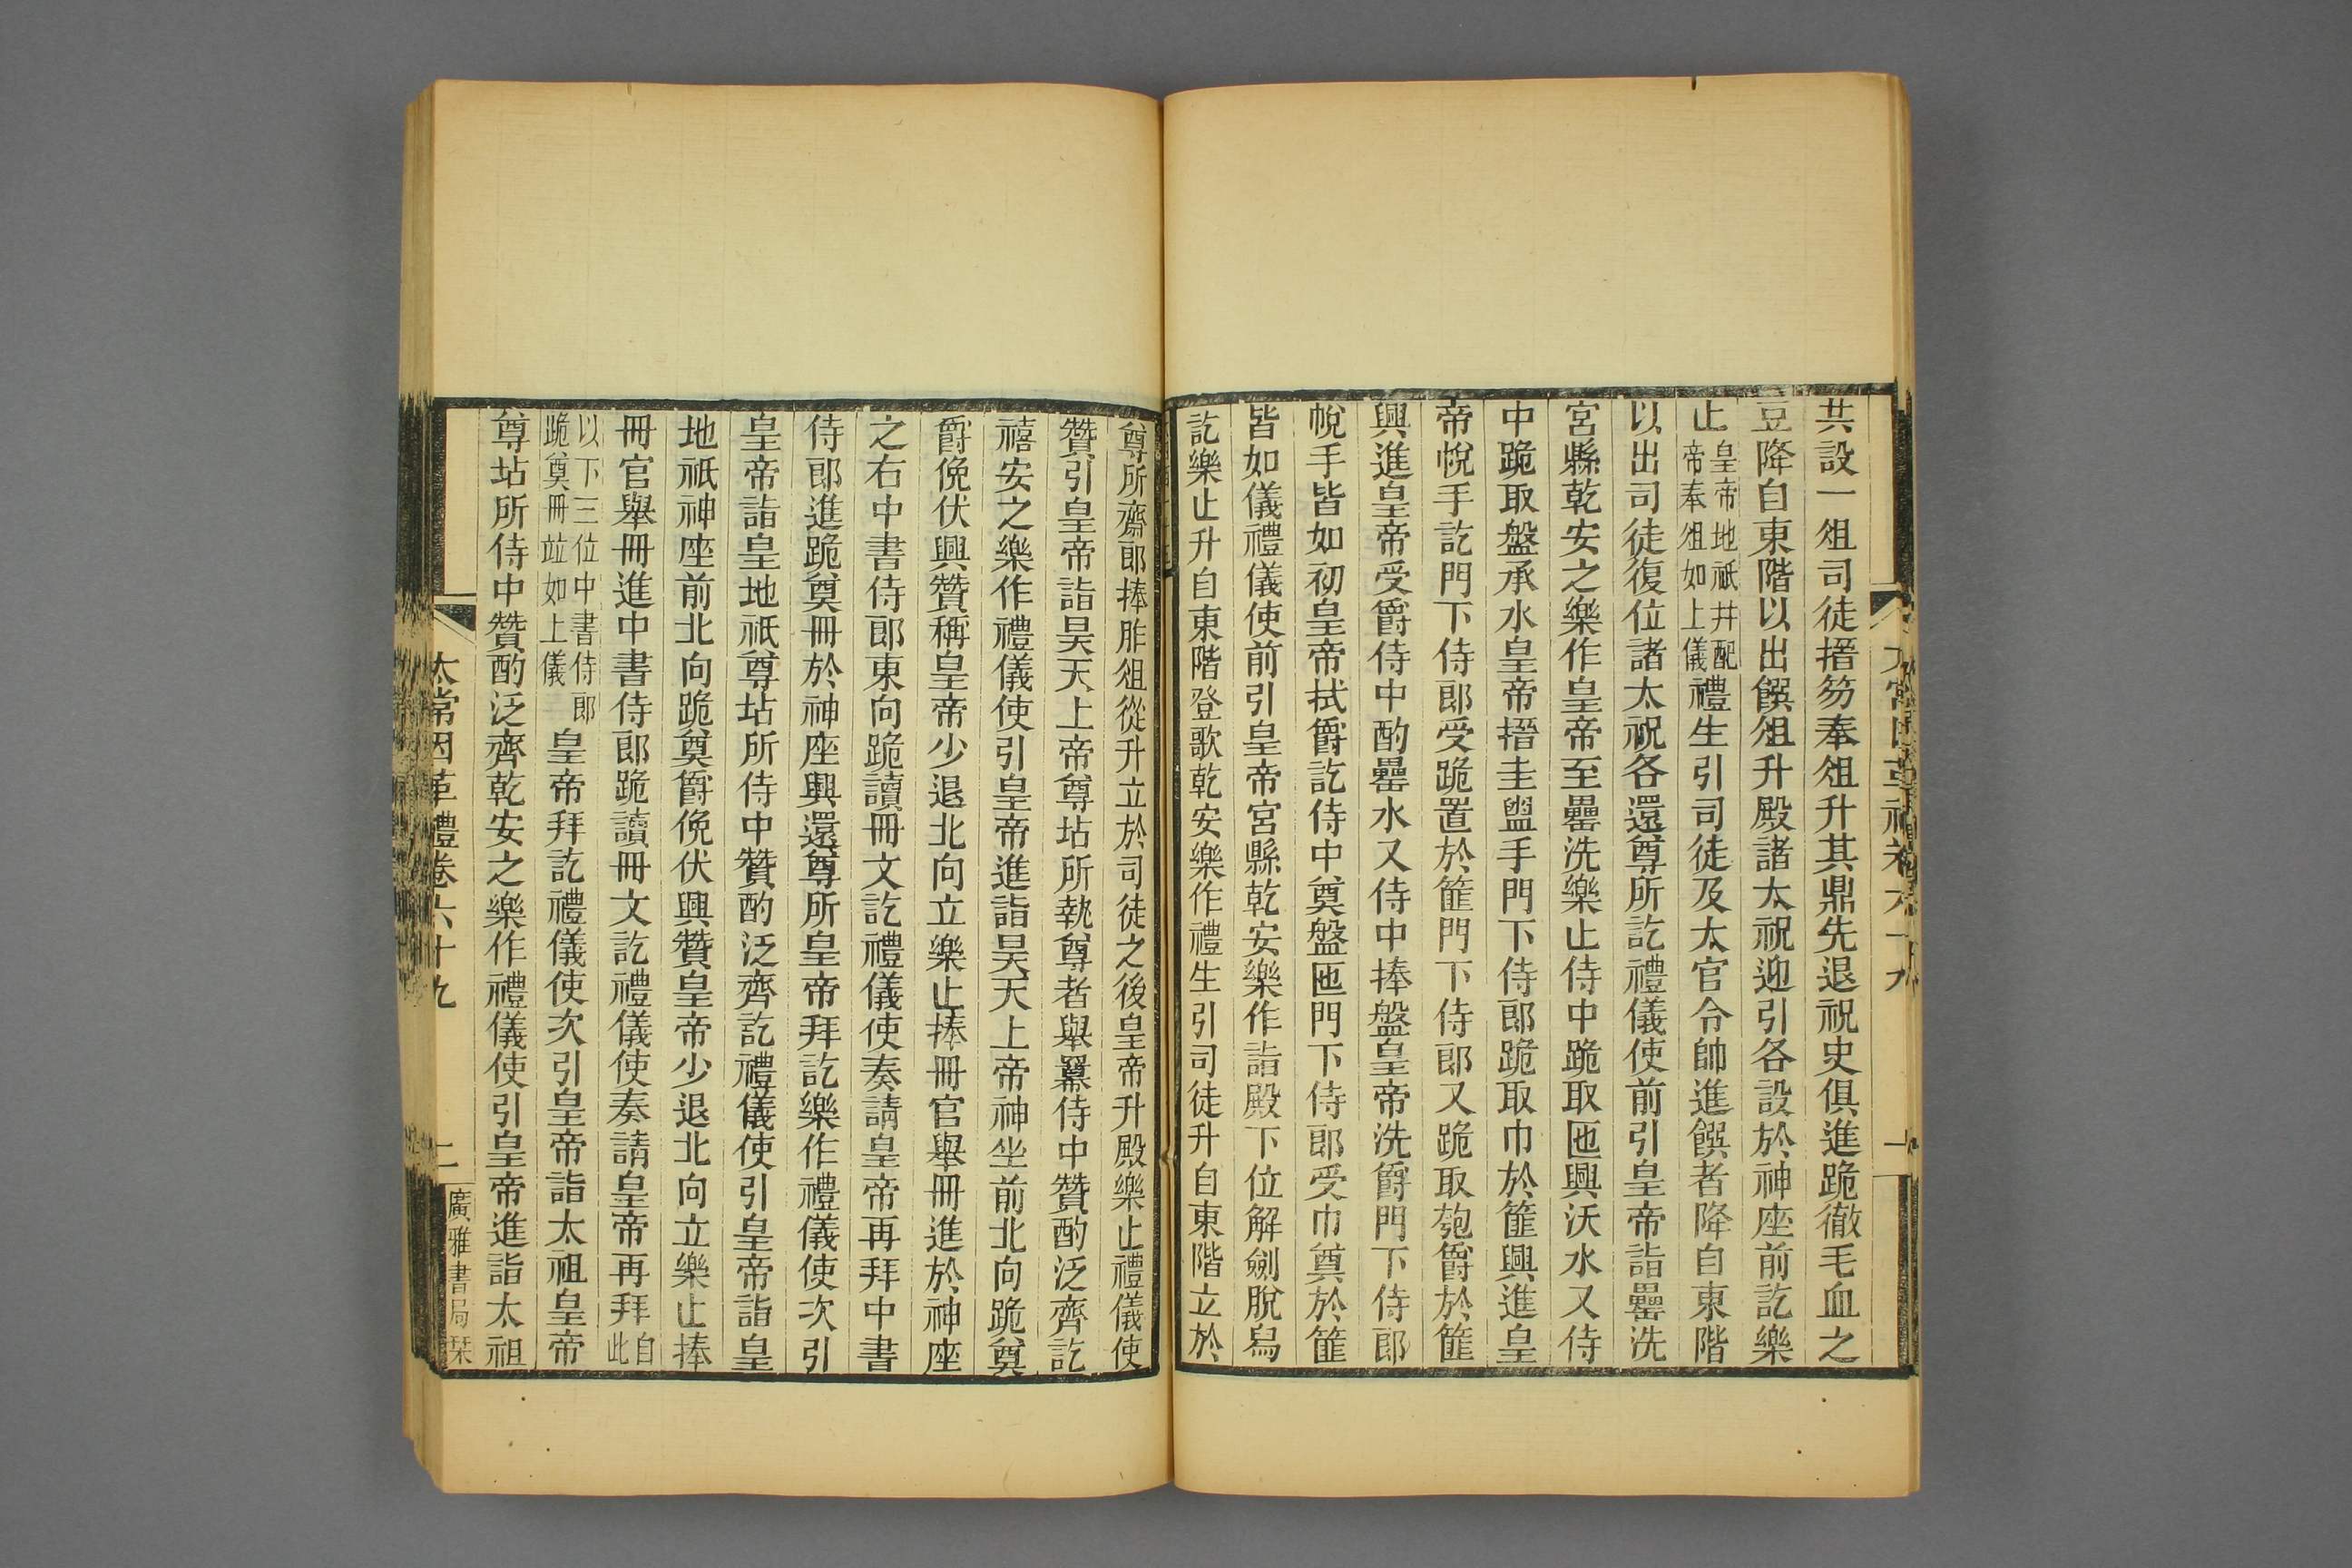 共設一俎司徒搢笏奉俎升其鼎先退祝史俱進跪徹毛血之
豆降自東階以出饌俎升殿諸太祝迎引各設於神座前訖樂
止皇帝地祇并配帝奉俎如上儀禮生引司徒及太官令帥進饌者降自東階
以出司徒復位諸太祝各還尊所訖禮儀使前引皇帝詣罍洗
宮縣乾安之樂作皇帝至罍洗樂止侍中跪取匜興沃水又侍
中跪取盤承水皇帝搢圭盥手門下侍郎跪取巾於篚興進皇
帝帨手訖門下侍郎受跪置於篚門下侍郎又跪取匏爵於篚
興進皇帝受爵侍中酌罍水又侍中捧盤皇帝洗爵門下侍郎
帨手皆如初皇帝拭爵訖侍中奠盤匜門下侍郎受巾奠於篚
皆如儀禮儀使前引皇帝宮縣乾安樂作詣殿下位解劍脫舄
訖樂止升自東階登歌乾安樂作禮生引司徒升自東階立於
尊所齋郎捧胙俎從升立於司徒之後皇帝升殿樂止禮儀使
贊引皇帝詣昊天上帝尊坫所執尊者舉羃侍中贊酌泛齊訖
禧安之樂作禮儀使引皇帝進詣昊天上帝神坐前北向跪奠
爵俛伏興贊稱皇帝少退北向立樂止捧冊官舉冊進於神座
之右中書侍郎東向跪讀冊文訖禮儀使奏請皇帝再拜中書
侍郎進跪奠冊於神座興還尊所皇帝拜訖樂作禮儀使次引
皇帝詣皇地祇尊坫所侍中贊酌泛齊訖禮儀使引皇帝詣皇
地祇神座前北向跪奠爵俛伏興贊皇帝少退北向立樂止捧
冊官舉冊進中書侍郎跪讀冊文訖禮儀使奏請皇帝再拜自此
以下三位中書侍郎跪奠冊竝如上儀皇帝拜訖禮儀使次引皇帝詣太祖皇帝
尊坫所侍中贊酌泛齊乾安之樂作禮儀使引皇帝進詣太祖
太常因革禮卷六十九
二
廣雅書局栞